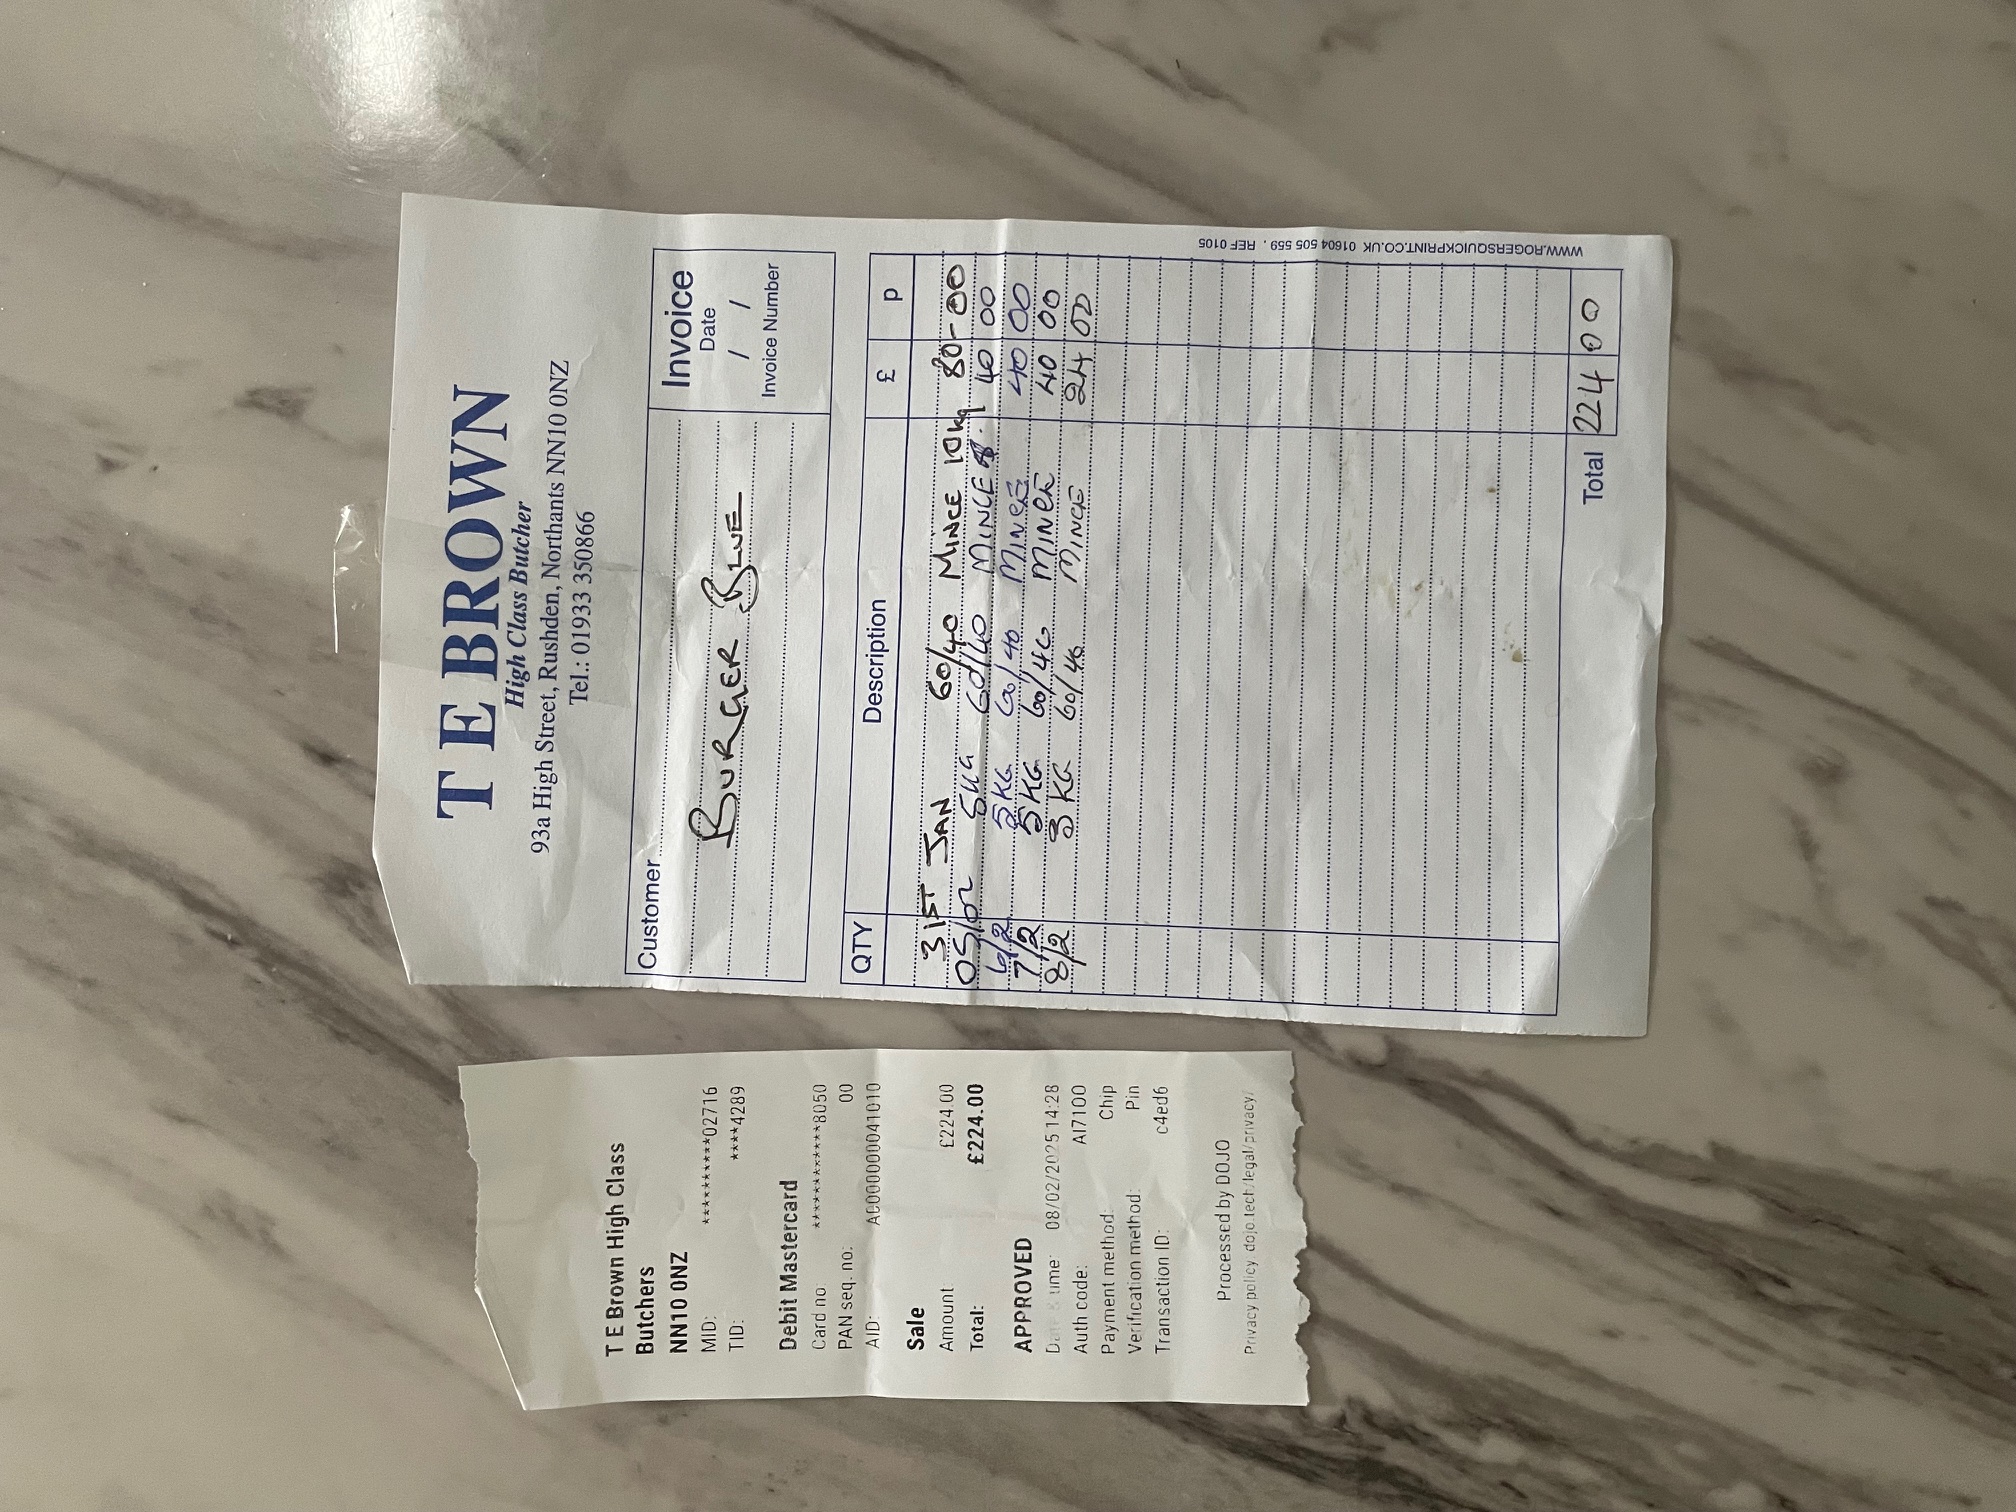 T E Brown High Class
Butchers
NN10 0NZ
MID: **********02716
TID: ****4289
Debit Mastercard
Card no: ************8050
PAN seq. no: 00
AID: A0000000041010
Sale
Amount £224.00
Total: £224.00
APPROVED
Date & time: 08/02/2025 14:28
Auth code: AI7100
Payment method: Chip
Verification method: Pin
Transaction ID: c4ed6
Processed by DOJO
Privacy policy: dojo.tech/legal/privacy/
T E BROWN
High Class Butcher
93a High Street, Rushden, Northants NN10 0NZ
Tel.: 01933 350866
Customer
BURGER BLUE
Invoice
Date
/ /
Invoice Number
QTY Description £ p
31ST JAN 60/40 MINCE 10kg 80-00
05/02 5KG 60/40 MINCE 40 00
6/2 5KG 60/40 MINCE 40 00
7/2 5KG 60/40 MINCE 40 00
8/2 3KG 60/40 MINCE 24 00
Total 224 00
WWW.ROGERSQUICKPRINT.CO.UK 01604 505 559 . REF 0105